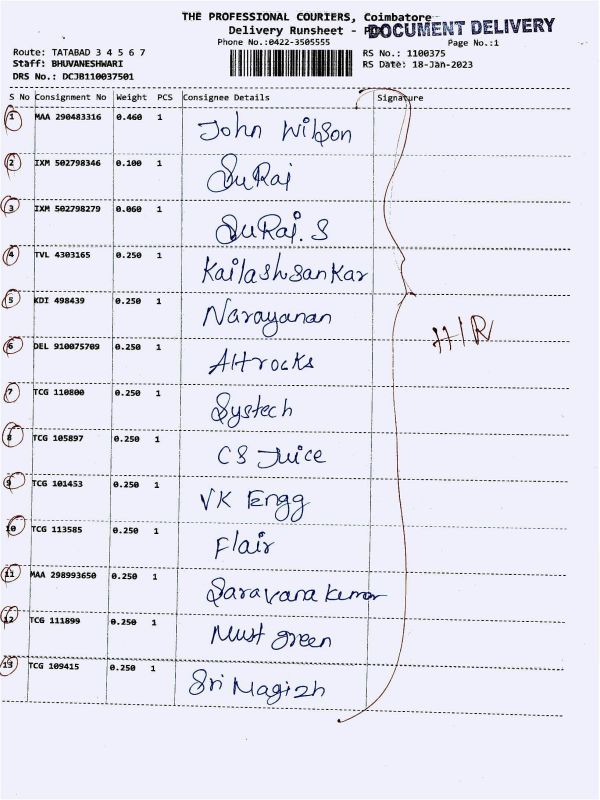 THE PROFESSIONAL COURIERS, Coimbatore
Delivery Runsheet -
DOCUMENT DELIVERY
Phone No.:0422-3505555
Page No.:1
Route: TATABAD 3 4 5 6 7
RS No.: 1100375
Staff: BHUVANESHWARI
RS Date: 18-Jan-2023
DRS No.: DCJB110037501
S No Consignment No Weight PCS Consignee Details Signature
1 MAA 290483316 0.460 1 John Wilson
2 IXM 502798346 0.100 1 SuRaj
3 IXM 502798279 0.060 1 SuRaj. S
4 TVL 4303165 0.250 1 Kailashsankar
5 KDI 498439 0.250 1 Narayanan
H/R
6 DEL 910075709 0.250 1 Altrocks
7 TCG 110800 0.250 1 Systech
8 TCG 105897 0.250 1 CS Juice
9 TCG 101453 0.250 1 VK Engg
10 TCG 113585 0.250 1 Flair
11 MAA 298993650 0.250 1 Saravana kumar
12 TCG 111899 0.250 1 Must green
13 TCG 109415 0.250 1 Sri Magizh